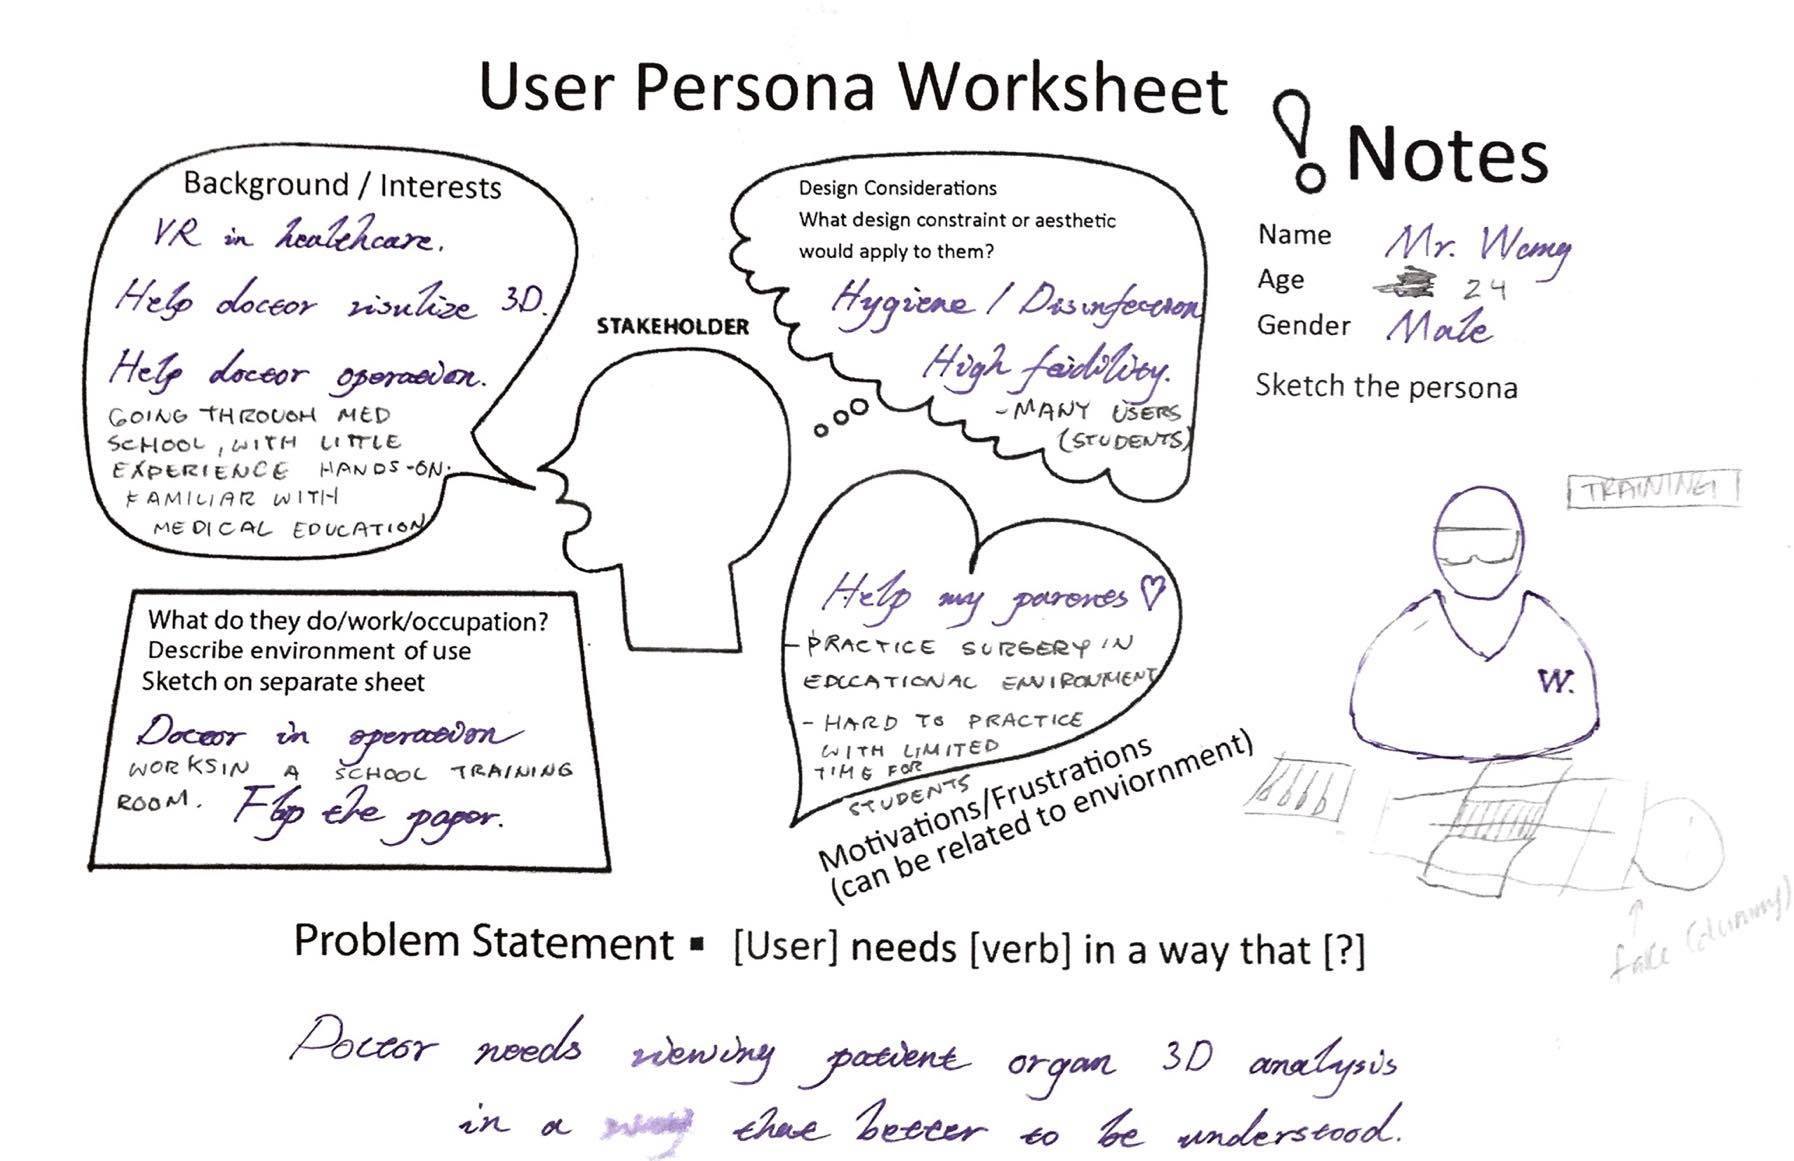 User Persona Worksheet
Notes
Background / Interests
VR in healthcare.
Help doctor visulize 3D.
Help doctor operation.
GOING THROUGH MED
SCHOOL, WITH LITTLE
EXPERIENCE HANDS-ON.
FAMILIAR WITH
MEDICAL EDUCATION
STAKEHOLDER
Design Considerations
What design constraint or aesthetic
would apply to them?
Hygiene / Disinfection
High
- MANY USERS
(STUDENTS)
Name Mr. Wang
Age 24
Gender Male
Sketch the persona
TRAINING
W.
fake (dummy)
What do they do/work/occupation?
Describe environment of use
Sketch on separate sheet
Doctor in operation
WORKS IN A SCHOOL TRAINING
ROOM. Flip the paper.
Help my parents ♡
- PRACTICE SURGERY IN
EDUCATIONAL ENVIRONMENT
- HARD TO PRACTICE
WITH LIMITED
TIME FOR
STUDENTS
Motivations/Frustrations
(can be related to enviornment)
Problem Statement ▪ [User] needs [verb] in a way that [?]
Doctor needs viewing patient organ 3D analysis
in a way that better to be understood.